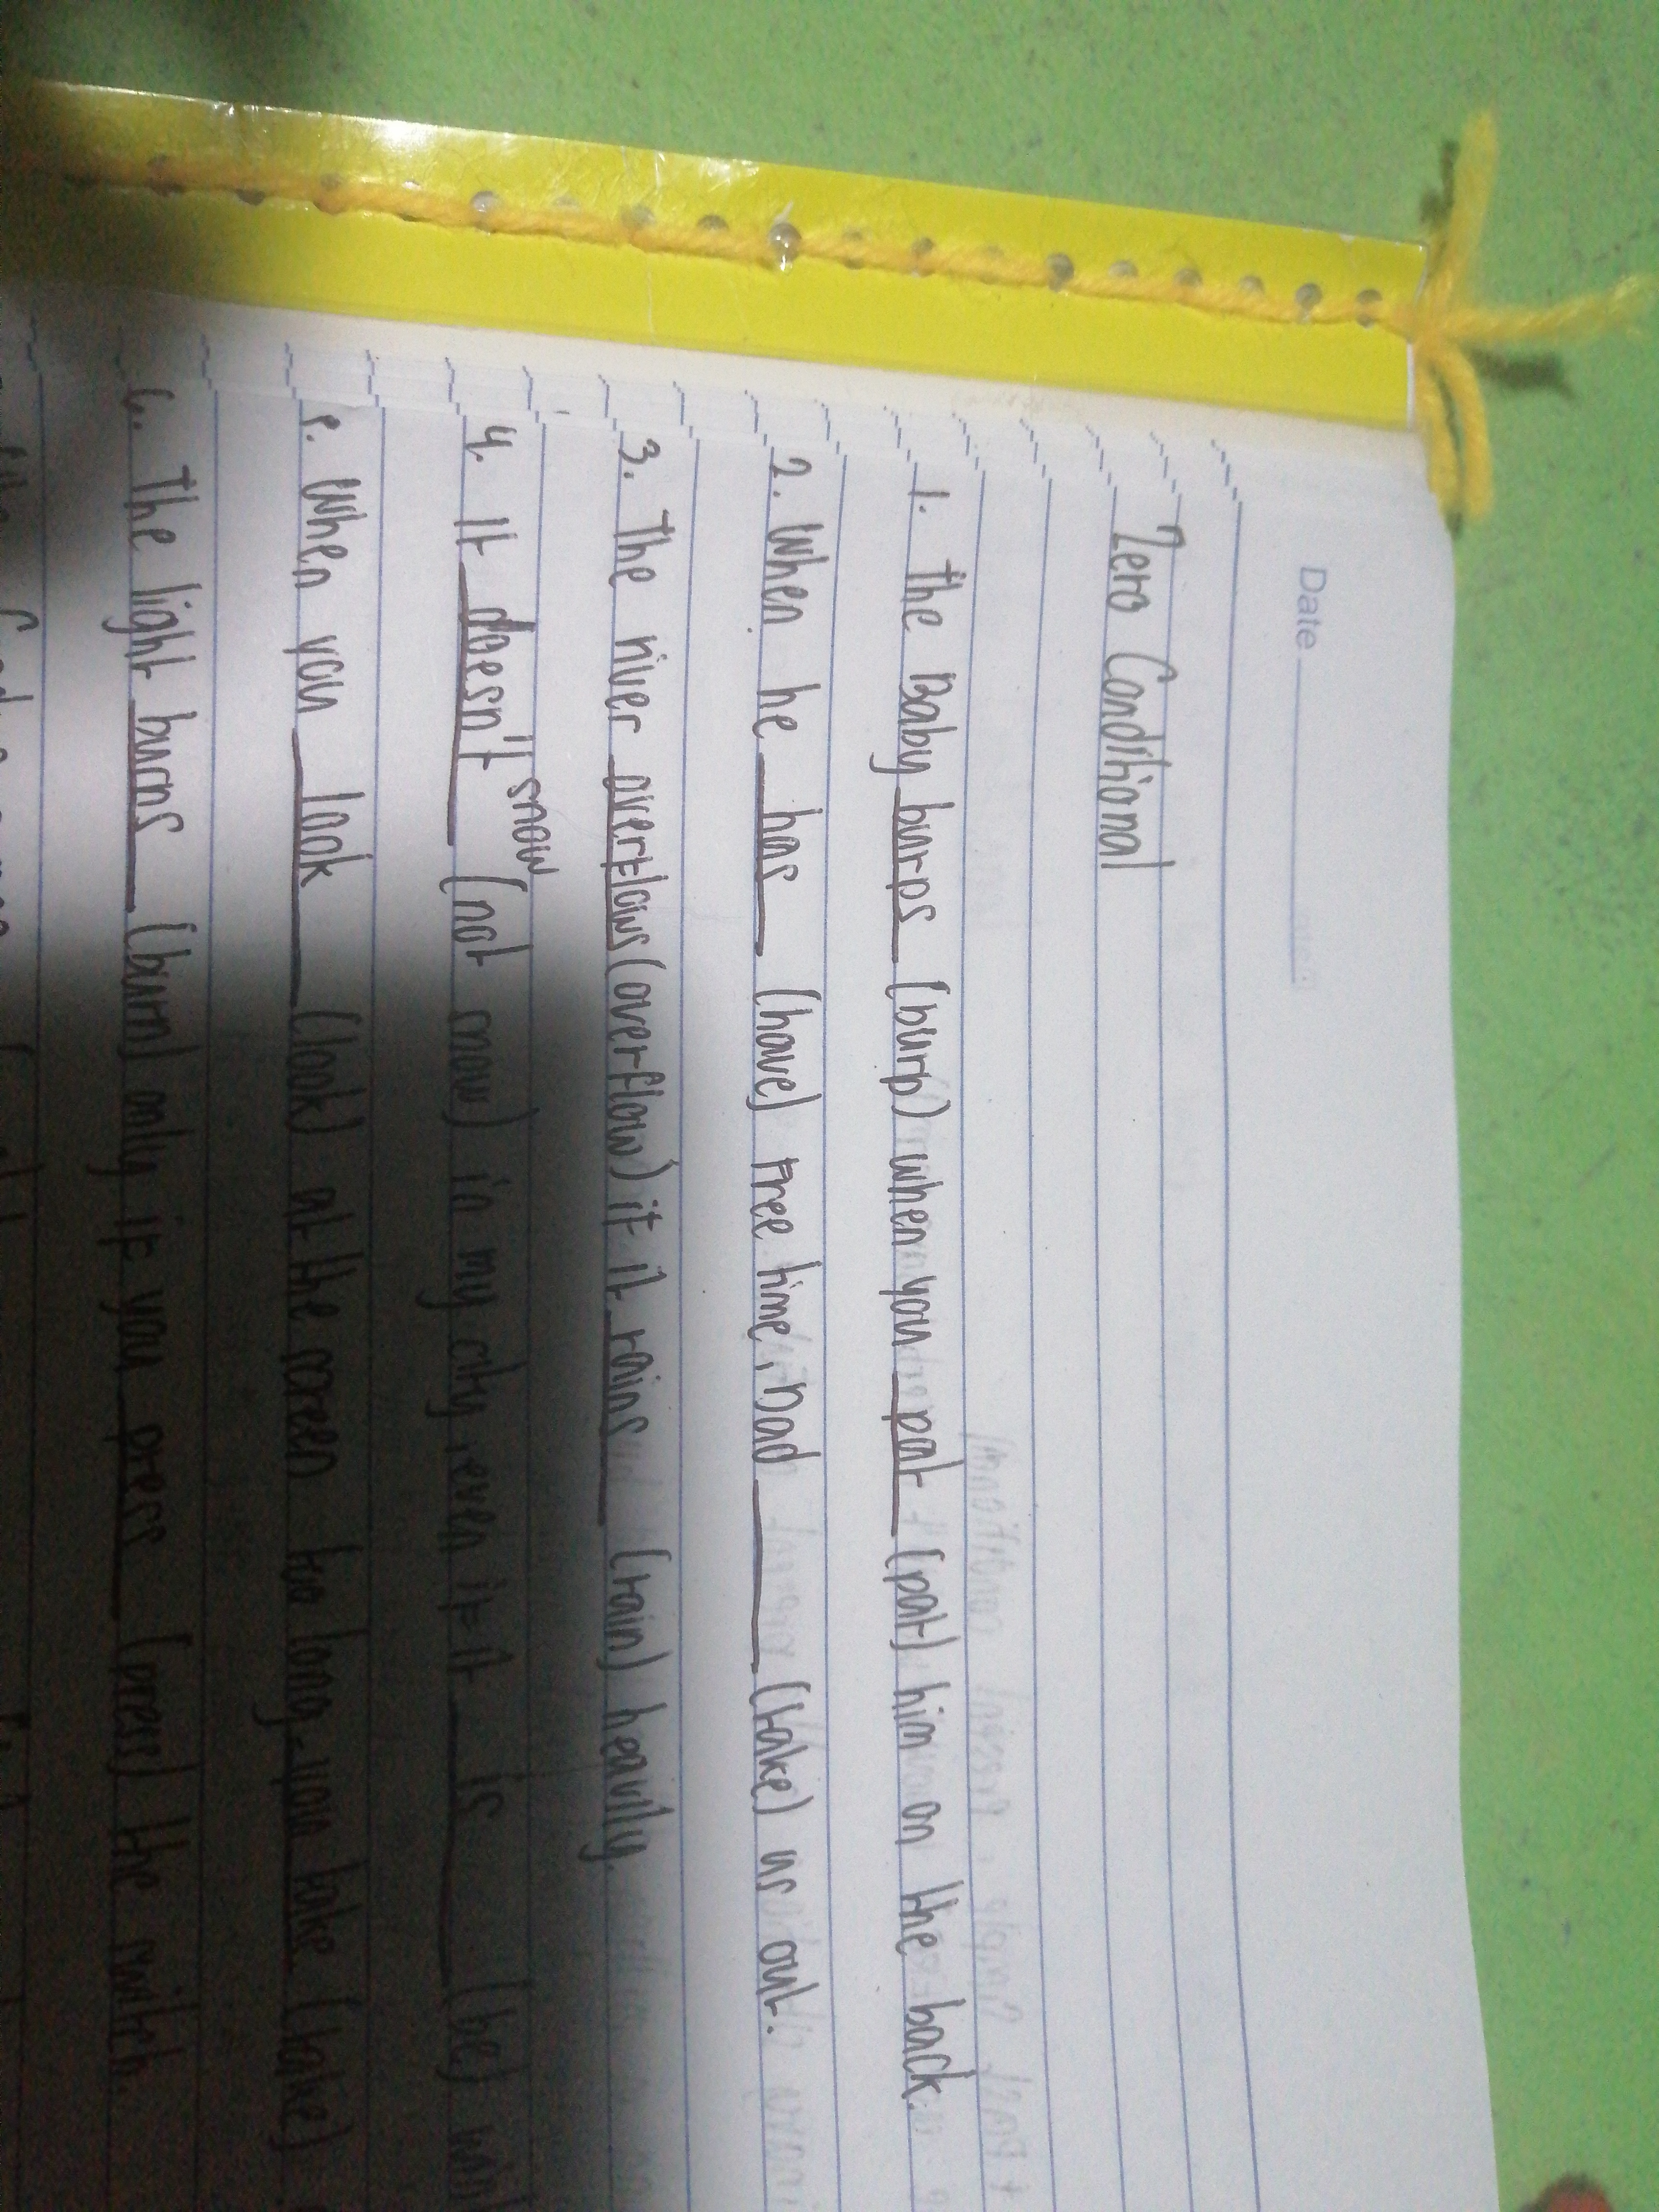 Date
Zero Conditional
1. The Baby burps (burp) when you pat (pat) him on the back.
2. When he has (have) free time, Dad ____ (take) us out.
3. The river overflows (overflow) if it rains (rain) heavily.
snow
4. It doesn't (not snow) in my city, even if it is (be)
5. When you look (look) at the screen too long, you take (take)
6. The light burns (burn) only if you press (press) the switch.